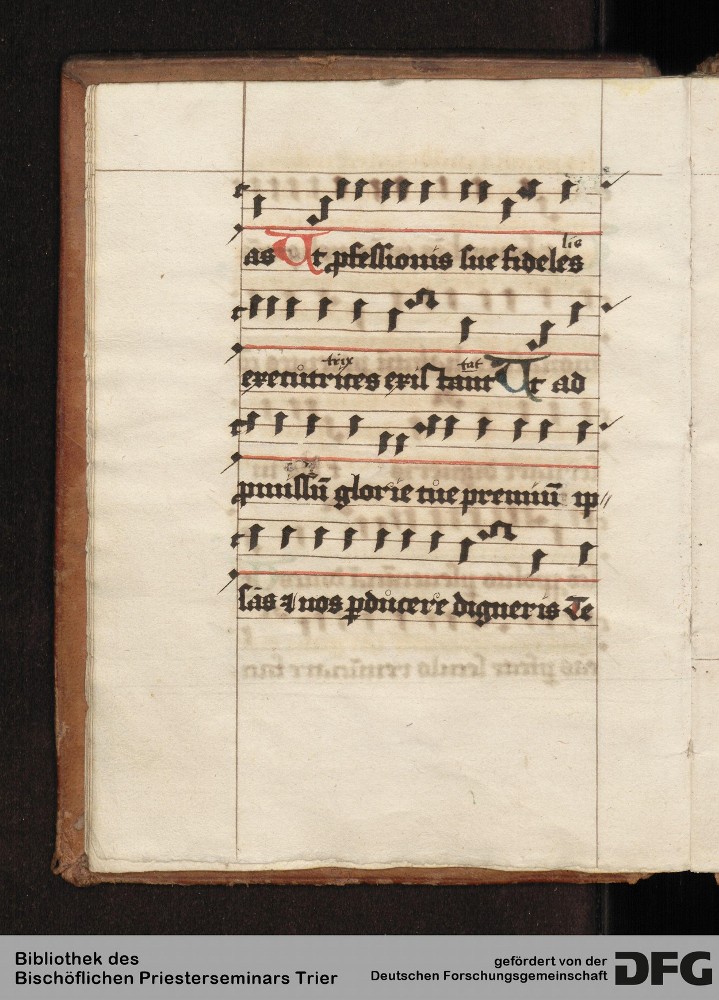 lis
as Ut ꝓfessionis sue fideles
trix tat
executrices exiſ tant Ut ad
ꝓmissū glorie tue premiū ip//
sas ⁊ nos ꝑducere digneris Te
Bibliothek des
Bischöflichen Priesterseminars Trier
gefördert von der
Deutschen Forschungsgemeinschaft
DFG